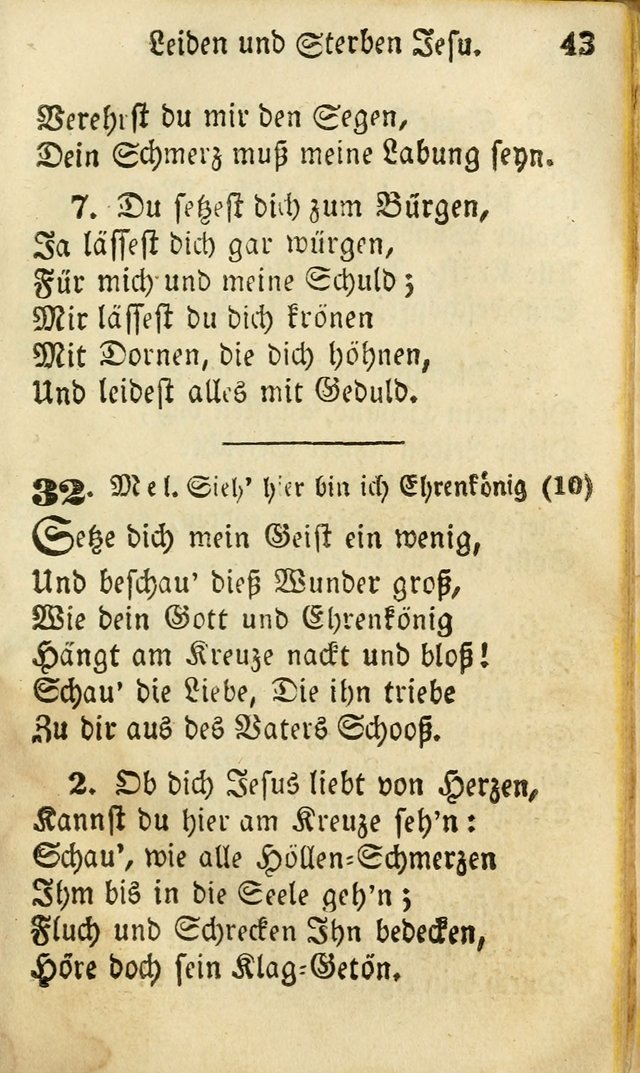 Leiden und Sterben Jesu. 43
Verehrst du mir den Segen,
Dein Schmerz muß meine Labung seyn.
7. Du setzest dich zum Bürgen,
Ja lässest dich gar würgen,
Für mich und meine Schuld;
Mir lässest du dich krönen
Mit Dornen, die dich höhnen,
Und leidest alles mit Geduld.
32. Mel. Sieh' hier bin ich Ehrenkönig (10)
Setze dich mein Geist ein wenig,
Und beschau' dieß Wunder groß,
Wie dein Gott und Ehrenkönig
Hängt am Kreuze nackt und bloß!
Schau' die Liebe, Die ihn triebe
Zu dir aus des Vaters Schooß.
2. Ob dich Jesus liebt von Herzen,
Kannst du hier am Kreuze seh'n:
Schau', wie alle Höllen-Schmerzen
Ihm bis in die Seele geh'n;
Fluch und Schrecken Ihn bedecken,
Höre doch sein Klag-Getön.